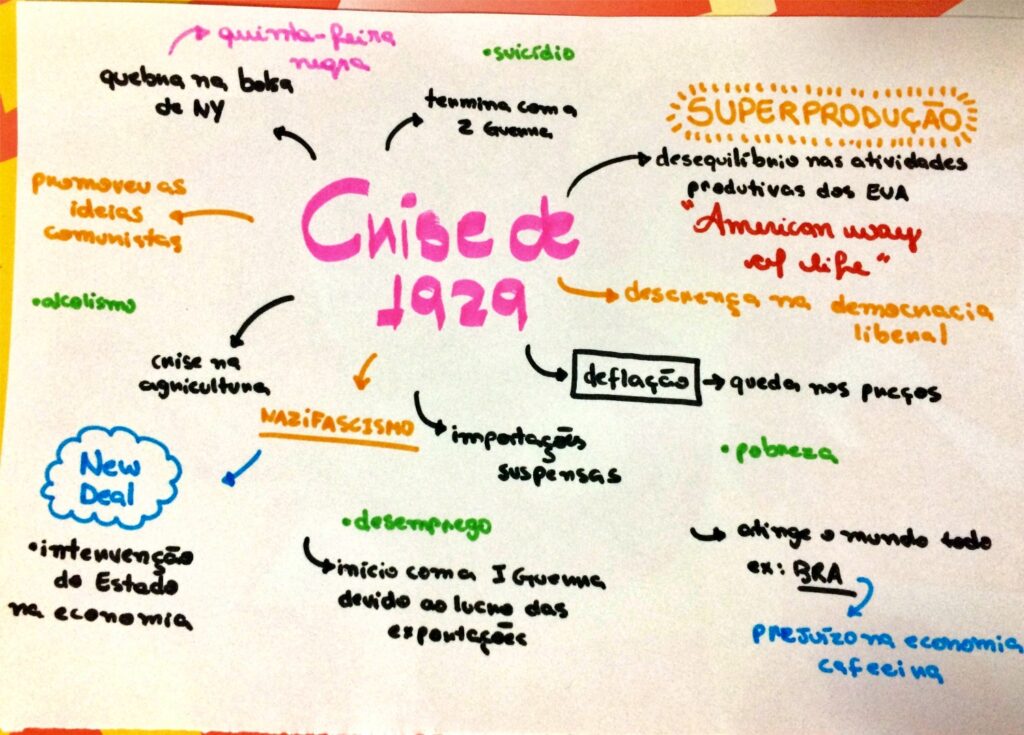 quinta-feira
negra
quebra na bolsa
de NY
•suicídio
termina com a
2 Guerra
SUPERPRODUÇÃO
desequilíbrio nas atividades
produtivas dos EUA
"American way
of life"
promoveu as
ideias
comunistas
Crise de
1929
descrença na democracia
liberal
•alcolismo
crise na
agricultura
deflação → queda nos preços
NAZIFASCISMO
importações
suspensas
•pobreza
New
Deal
•intervenção
do Estado
na economia
•desemprego
início com a I Guerra
devido ao lucro das
exportações
atinge o mundo todo
ex: BRA
prejuízo na economia
cafeeira